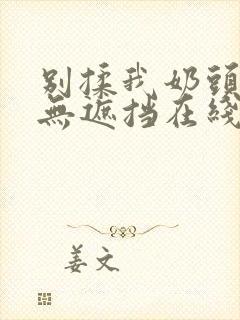 别揉我奶頭
無遮挡在綫
姜文